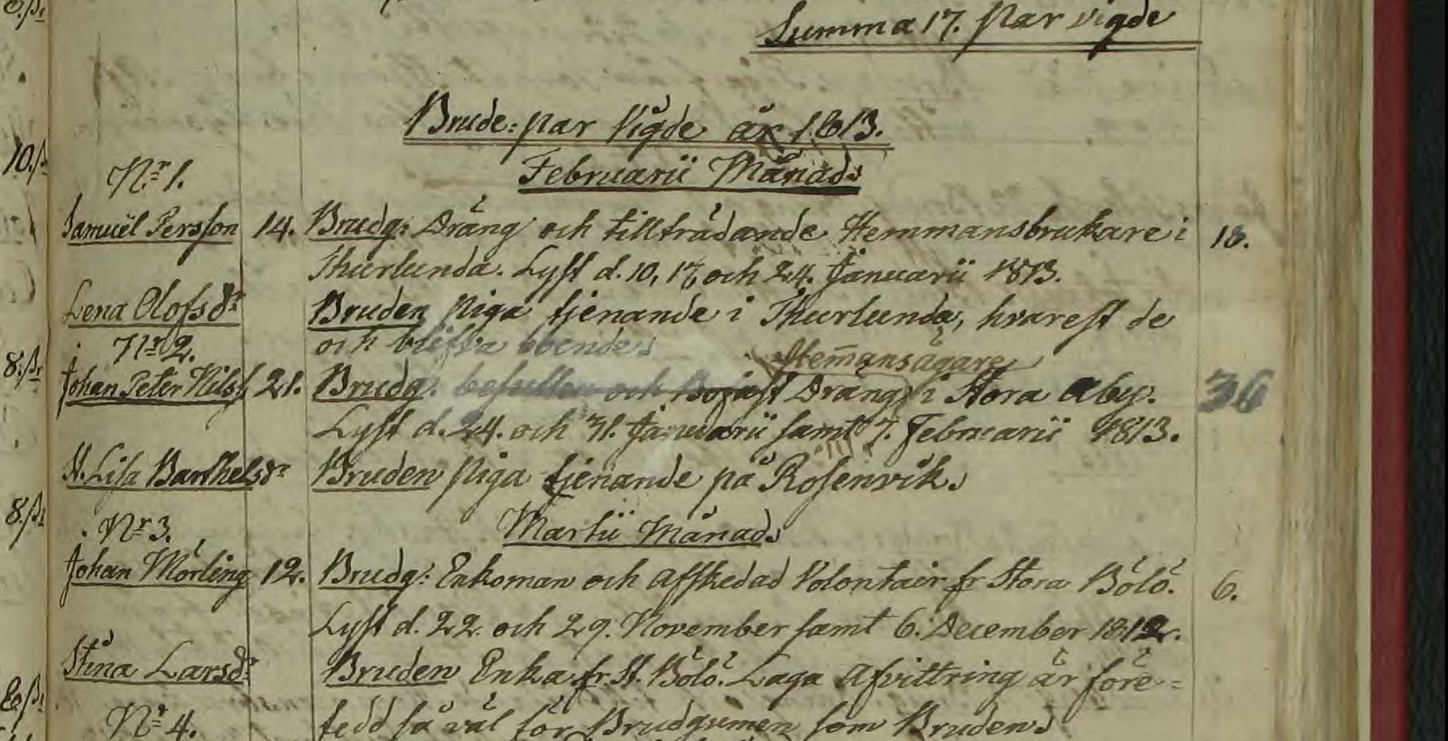 Summa 17. Par vigde
Brude-par Vigde år 1813.
Februarii Månad
Nr 1.
Samuël Persson 14. Brudg: Dräng och tillträdande Hemmansbrukare i 18.
Thurlunda. Lyst d. 10, 17 och 24. Januarii 1813.
Lena Olofsdr Bruden Piga tjenande i Thurlunda, hvarest de
och blifva boende.
Nr 2. Hemansägare
Johan Peter Nilss 21. Brudg. och Bofast Dräng i Stora Aby. 36
Lyst d. 24. och 31. Januarii samt 7. Februarii 1813.
St. Lisa Barthelsdr Bruden Piga tjenande på Rosenvik.
Martii Månad
Nr 3.
Johan Mörling 12. Brudg: Enkoman och Afskedad Volontair fr. Stora Bölö. 6.
Lyst d. 22. och 29. November samt 6. December 1812.
Stina Larsdr Bruden Enka fr. St. Bölö. Laga Afvittring är före=
Nr 4. tedd så väl för Brudgumen som Bruden